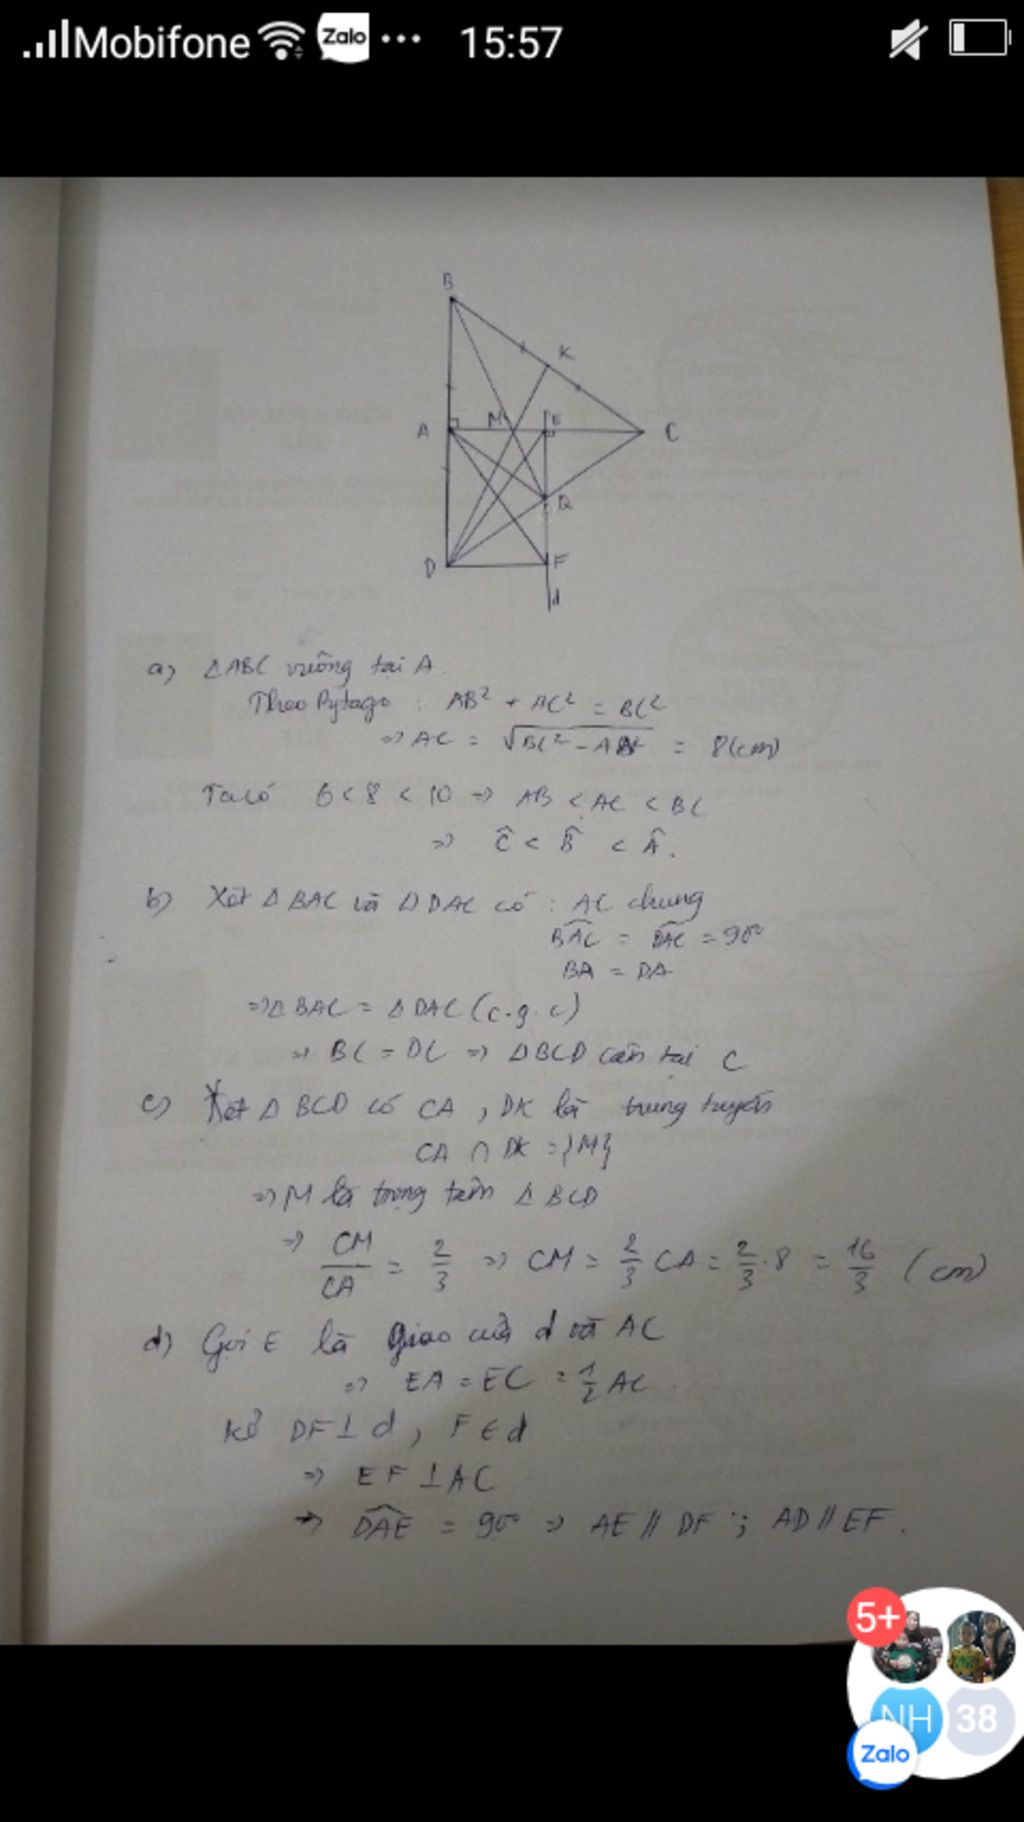 Mobifone Zalo ... 15:57
B
K
A M E C
Q
D F
d
a) △ABC vuông tại A.
Theo Pytago : AB² + AC² = BC²
=> AC = √BC² - AB² = 8(cm)
Ta có 6 < 8 < 10 => AB < AC < BC
=> Ĉ < B̂ < Â.
b) Xét △BAC và △DAC có : AC chung
BAC = DAC = 90°
BA = DA
=> △BAC = △DAC (c.g.c)
=> BC = DC => △BCD cân tại C
c) Xét △BCD có CA, DK là trung tuyến
CA ∩ DK = {M}
=> M là trọng tâm △BCD
=> CM/CA = 2/3 => CM = 2/3 CA = 2/3 . 8 = 16/3 (cm)
d) Gọi E là giao của d và AC
=> EA = EC = 1/2 AC.
Kẻ DF ⊥ d, F ∈ d
=> EF ⊥ AC
=> DAE = 90° => AE // DF ; AD // EF.
5+
NH 38
Zalo